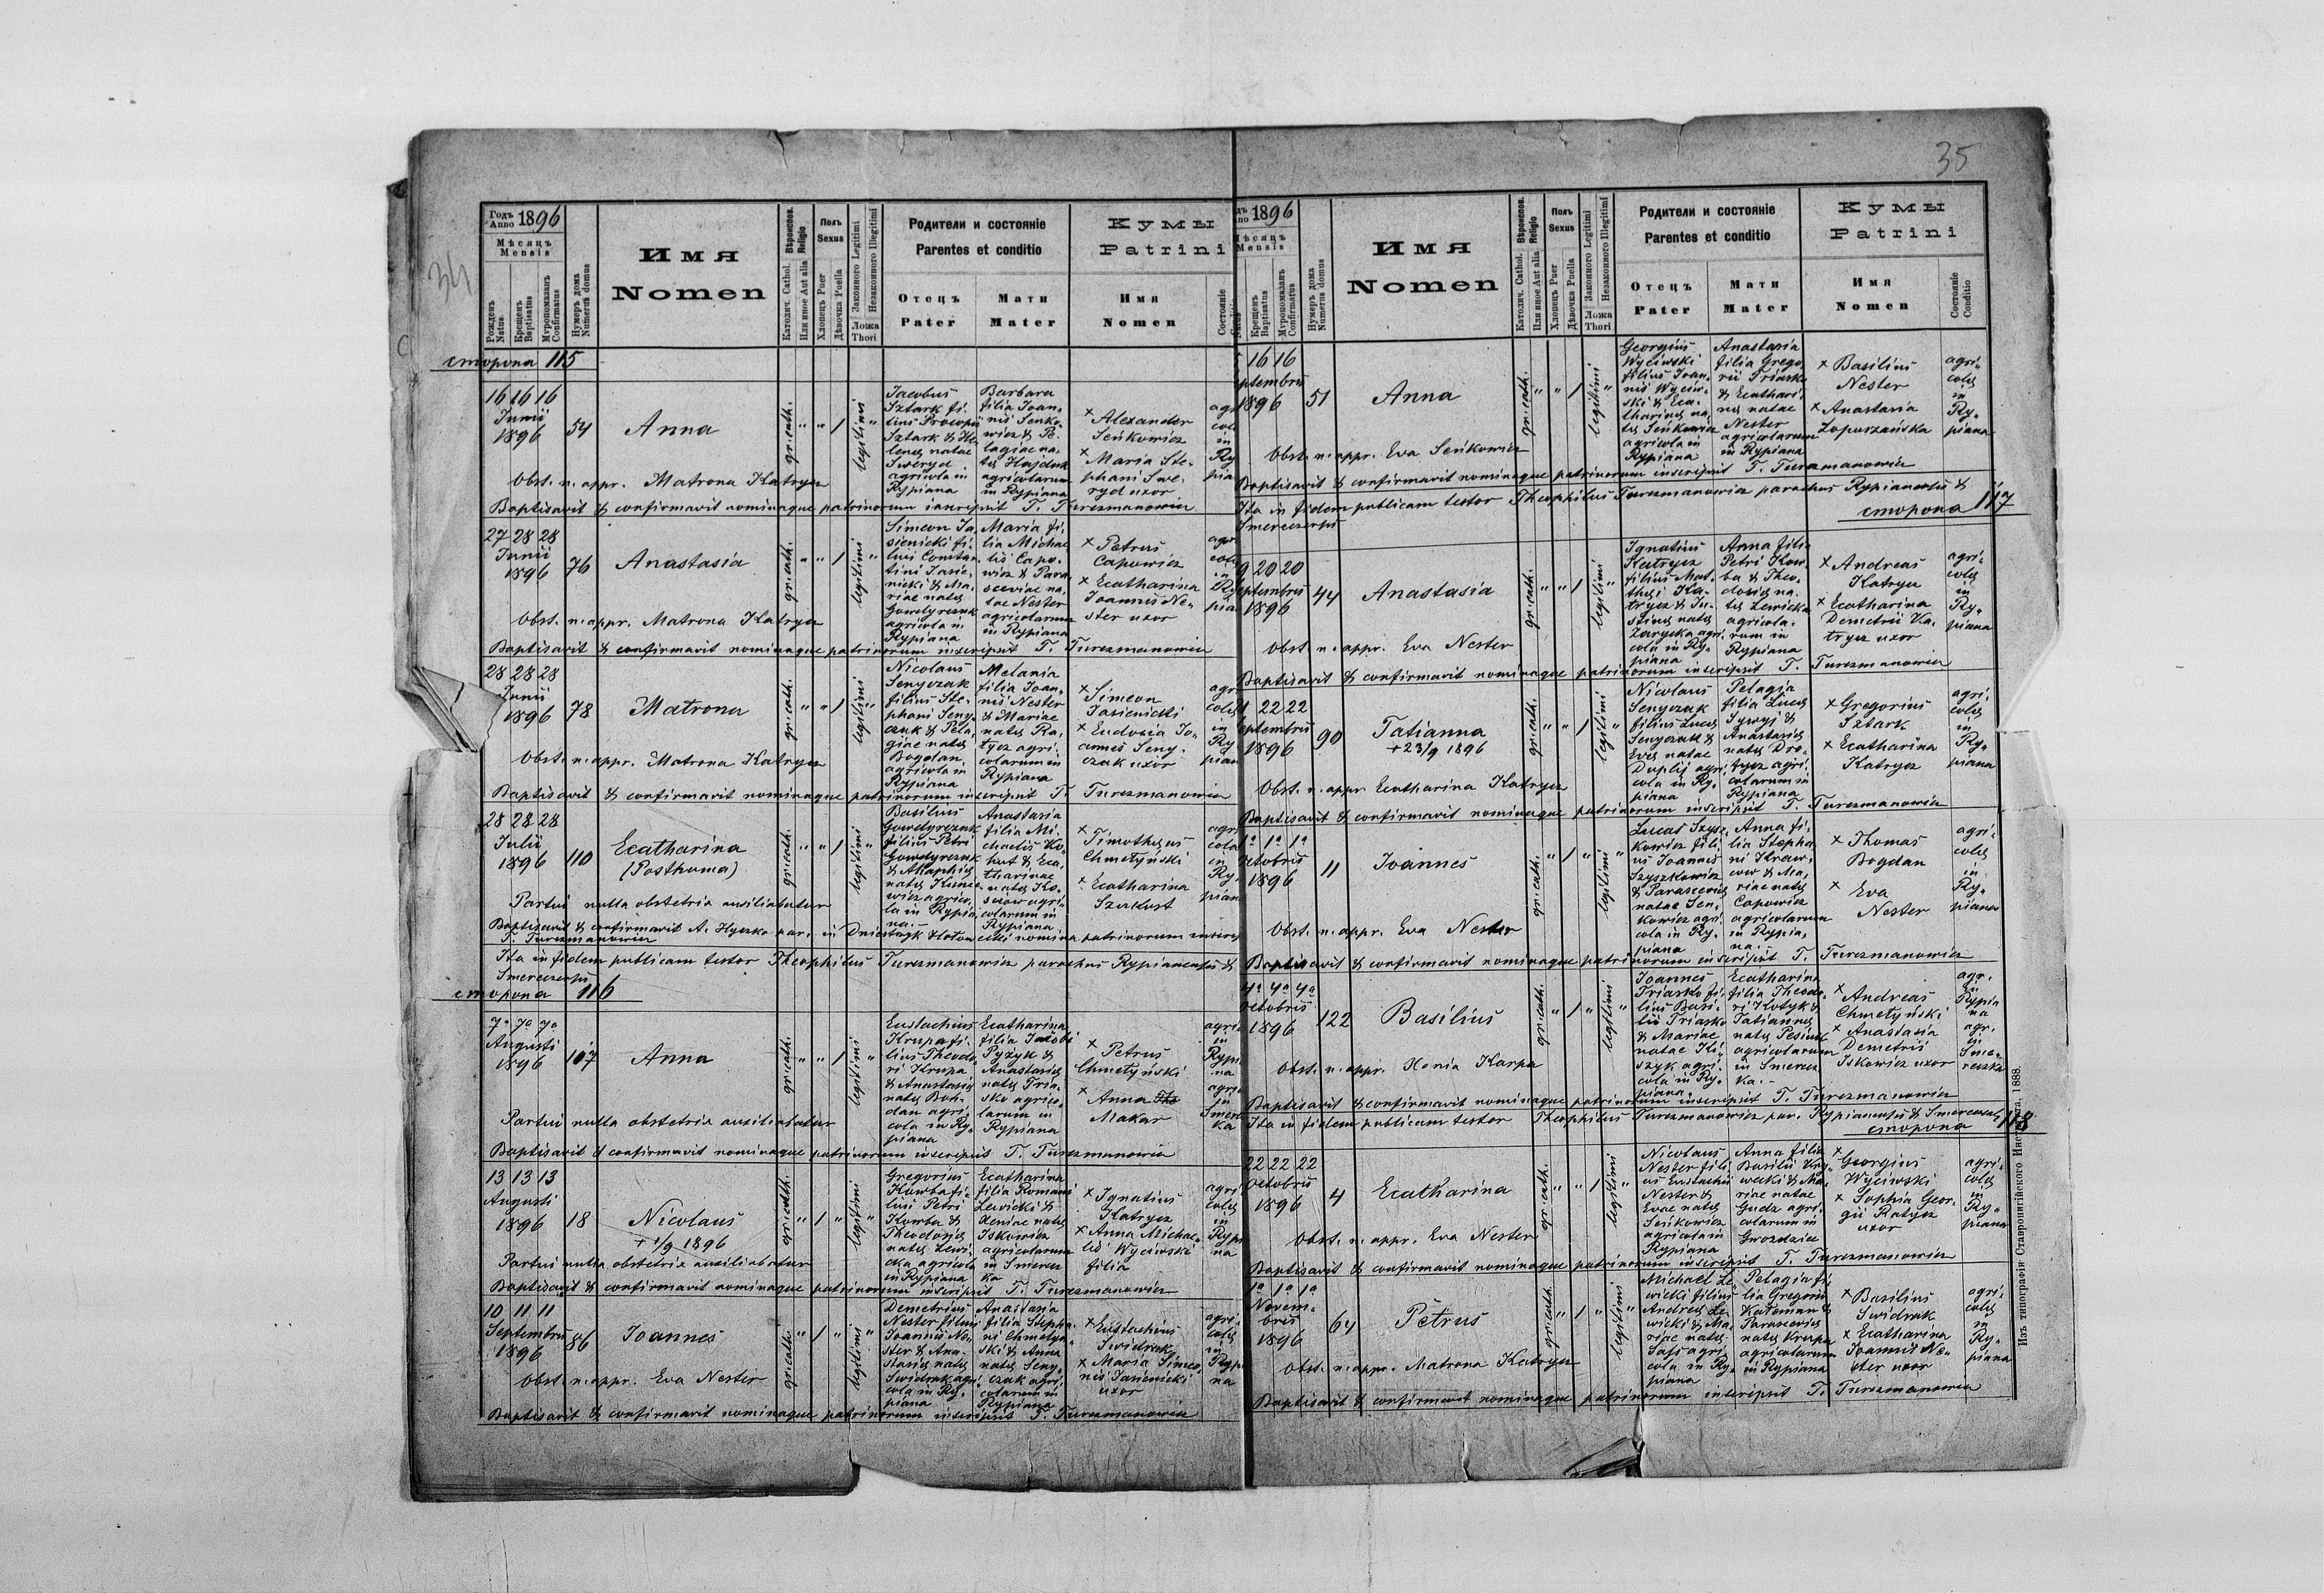 34
Годъ Anno 1896
Мѣсяцъ
Mensis
Рожденъ Natus
Крещенъ Baptisatus
Мѵропомазанъ Confirmatus
Нумеръ дома Numerus domus
Имя
Nomen
Вѣроиспов. Religio
Католич. Cathol.
Или иное Aut alia
Полъ
Sexus
Хлопецъ Puer
Дѣвочка Puella
Законного Legitimi
Незаконного Illegitimi
Ложа
Thori
Родители и состоянiе
Parentes et conditio
Отецъ
Pater
Мати
Mater
Кумы
Patrini
Имя
Nomen
Состоянiе
сторона 115
16 16 16
Junii
1896
54
Anna
gr. cath. " " 1 legitimi "
Jacobus
Sztark fi-
lius Procopii
Sztark & He-
lenae natae
Sweryd
agricola in
Rypiana
Barbara
filia Joan-
nis Senko-
wicz & Pe-
lagiae na-
tae Hajduk
agricolarum
in Rypiana
× Alexander
Seńkowicz
× Maria Ste-
phani Swe-
ryd uxor
Obst. n. appr. Matrona Katrycz
Baptisavit & confirmavit nominaque patrinorum inscripsit T. Turczmanowicz
27 28 28
Junii
1896
76
Anastasia
gr. cath. " " 1 legitimi "
Simeon Ja-
sienicki fi-
lius Constan-
tini Jasie-
nicki & Ma-
riae natae
Gowdyrczuk
agricola in
Rypiana
Maria fi-
lia Michae-
lis Capo-
wicz & Para-
sceviae na-
tae Nester
agricolarum
in Rypiana
× Petrus
Capowicz
× Ecatharina
Joannis Ne-
ster uxor
Obst. n. appr. Matrona Katrycz
Baptisavit & confirmavit nominaque patrinorum inscripsit T. Turczmanowicz
28 28 28
Junii
1896
78
Matrona
gr. cath. " " 1 legitimi "
Nicolaus
Senyczak
filius Ste-
phani Seny-
czak & Pela-
giae natae
Bogdan
agricola in
Rypiana
Melania
filia Joan-
nis Nester
& Mariae
natae Ra-
tycz agri-
colarum in
Rypiana
× Simeon
Jasienicki
× Eudoxia Jo-
annis Seny-
czak uxor
Obst. n. appr. Matrona Katrycz
Baptisavit & confirmavit nominaque patrinorum inscripsit T. Turczmanowicz
28 28 28
Julii
1896
110
Ecatharina
(Posthuma)
gr. cath. " " 1 legitimi "
Basilius
Gowdyrczuk
filius Petri
Gowdyrczuk
natae
agrico-
la in Rypia-
na.-
Anastasia
filia Mi-
chaelis Ko-
hut & Eca-
tharinae
natae
agri-
colarum in
Rypiana
× Timotheus
Chmetyński
× Ecatharina
Partui nulla obstetrix auxiliabatur
Baptisavit & confirmavit A. Hyczko par. in nomina patrinorum inscrip
T. Turczmanowicz
Ita in fidem publicam testor Theophilus Turczmanowicz parochus Rypianensis &
Smereczensis
сторона 116
7ᵃ 7ᵃ 7ᵃ
Augusti
1896
107
Anna
gr. cath. " " 1 legitimi "
Eustachius
Krupa fi-
lius Theodo-
ri Krupa
& Anastasiae
natae Boh-
dan agri-
cola in Ry-
piana
Ecatharina
filia Jacobi
Pyżyk &
Anastasiae
natae Tria-
sko agrico-
larum in
Rypiana
× Petrus
Chmetyński
× Anna
Makar
Partui nulla obstetrix auxiliabatur
Baptisavit & confirmavit nominaque patrinorum inscripsit T. Turczmanowicz
13 13 13
Augusti
1896
18
Nicolaus
+ 1/9 1896
gr. cath. " 1 " legitimi "
Gregorius
Kowba fi-
lius Petri
Kowba &
Theodosiae
natae Lewi-
cka agricola
in Rypiana
Ecatharina
filia Romani
Lewicki &
Xeniae natae
Iskowicz
agricolarum
in Smerecz-
ka
× Ignatius
Katrycz
× Anna Michae-
lis Wyciwski
filia
Partui nulla obstetrix auxiliabatur
Baptisavit & confirmavit nominaque patrinorum inscripsit T. Turczmanowicz
10 11 11
Septembris
1896
86
Joannes
gr. cath. " 1 " legitimi "
Demetrius
Nester filius
Joannis Ne-
ster & Ana-
stasiae natae
Swidrak agri-
cola in Ry-
piana
Anastasia
filia Stepha-
ni Chmetyń-
ski & Anna
natae Seny-
czak agri-
colarum in
Rypiana
× Eustachius
Swidrak
× Maria Simeo-
nis Jasienicki
uxor
Obst. n. appr. Eva Nester
Baptisavit & confirmavit nominaque patrinorum inscripsit T. Turczmanowicz
35
1896
Мѣсяцъ
Mensis
Крещенъ Baptisatus
Мѵропомазанъ Confirmatus
Нумеръ дома Numerus domus
Имя
Nomen
Вѣроиспов. Religio
Католич. Cathol.
Или иное Aut alia
Полъ
Sexus
Хлопецъ Puer
Дѣвочка Puella
Законного Legitimi
Незаконного Illegitimi
Ложа
Thori
Родители и состоянiе
Parentes et conditio
Отецъ
Pater
Мати
Mater
Кумы
Patrini
Имя
Nomen
Состоянiе
Conditio
16 16
ptembris
1896
51
Anna
gr. cath. " " 1 legitimi "
Georgius
Wyciwski
filius Joan-
nis Wyciw-
ski & Eca-
tharinae na-
tae Seńkowicz
agricola in
Rypiana
Anastasia
filia Grego-
rii Triasko
& Ecathari-
nae natae
Nester
agricolarum
in Rypiana
× Basilius
Nester
× Anastasia
Łopuszańska
agri-
colae
in
Ry-
piana
Obst. n. appr. Eva Seńkowicz
Baptisavit & confirmavit nominaque patrinorum inscripsit T. Turczmanowicz
Ita in fidem publicam testor Theophilus Turczmanowicz parochus Rypianensis &
Smereczensis
сторона 117
20 20
eptembris
1896
44
Anastasia
gr. cath. " " 1 legitimi "
Ignatius
Katrycz
filius Mat-
thei Ka-
trycz & Ju-
stinae natae
Zarycka agri-
cola in Ry-
piana
Anna filia
Petri Kow-
ba & Theo-
dosiae na-
tae Lewicka
agricola-
rum in
Rypiana
× Andreas
Katrycz
× Ecatharina
Demetrii Ka-
trycz uxor
agri-
colae
in
Ry-
piana
Obst. n. appr. Eva Nester
Baptisavit & confirmavit nominaque patrinorum inscripsit T. Turczmanowicz
22 22
eptembris
1896
90
Tatianna
+ 23/9 1896
gr. cath. " " 1 legitimi "
Nicolaus
Senyczak
filius Lucae
Senyczak &
Evae natae
Duplij agri-
cola in Ry-
piana
Pelagia
filia Lucae
Sywyj &
Anastasiae
natae Dro-
tycz agri-
colarum in
Rypiana
× Gregorius
Sztark
× Ecatharina
Katrycz
agri-
colae
in
Ry-
piana
Obst. n. appr Ecatharina Katrycz
Baptisavit & confirmavit nominaque patrinorum inscripsit T. Turczmanowicz
1ᵃ 1ᵃ 1ᵃ
Octobris
1896
11
Joannes
gr. cath. " 1 " legitimi "
Lucas Szysz-
kowicz fili-
us Joannis
Szyszkowicz
& Parasceviae
natae Sen-
kowicz agri-
cola in Ry-
piana
Anna fi-
lia Stepha-
ni Kraw-
cow & Ma-
riae natae
Capowicz
agricolarum
in Rypia-
na.-
× Thomas
Bogdan
× Eva
Nester
agri-
colae
in
Ry-
piana
Obst. n. appr. Eva Nester
Baptisavit & confirmavit nominaque patrinorum inscripsit T. Turczmanowicz
4ᵃ 4ᵃ 4ᵃ
Octobris
1896
122
Basilius
gr. cath. " 1 " legitimi "
Joannes
Triasko fi-
lius Basi-
lii Triasko
& Mariae
natae Ki-
szyk agri-
cola in Ry-
piana.
Ecatharina
filia Theodo-
ri Kotyk &
Tatiannae
natae
agricolarum
in Smerecz-
ka.-
× Andreas
Chmetyński
× Anastasia
Demetrii
Iskowicz uxor
agr.
in
Rypia
na
agr.
in
Sme-
reczka
Obst. n. appr. Xenia Karpa
Baptisavit & confirmavit nominaque patrinorum inscripsit T. Turczmanowicz
Ita in fidem publicam testor Theophilus Turczmanowicz par. Rypianensis & Smereczensis
сторона 118
22 22 22
Octobris
1896
4
Ecatharina
gr. cath. " " 1 legitimi "
Nicolaus
Nester fili-
us Eustachii
Nester &
Evae natae
Seńkowicz
agricola in
Rypiana
Anna filia
Basilii Kry-
wecki & Ma-
riae natae
Gudz agri-
colarum in
Gwozdziec
× Georgius
Wyciwski
× Sophia Geor-
gii Ratycz
uxor
agri-
colae
in
Ry-
piana
Obst. n. appr. Eva Nester
Baptisavit & confirmavit nominaque patrinorum inscripsit T. Turczmanowicz
1ᵃ 1ᵃ 1ᵃ
Novem-
bris
1896
64
Petrus
gr. cath. " 1 " legitimi "
Michael Le-
wicki filius
Andreae Le-
wicki & Ma-
riae natae
Sass agri-
cola in Ry-
piana
Pelagia fi-
lia Gregorii
Kateman &
Parasceviae
natae Krupa
agricolarum
in Rypiana
× Basilius
Swidrak
× Ecatharina
Joannis Ne-
ster uxor
agri-
colae
in
Ry-
piana
Obst. n. appr. Matrona Katrycz
Baptisavit & confirmavit nominaque patrinorum inscripsit T. Turczmanowicz
Изъ типографiи Ставропигiйского Инстит. 1888.